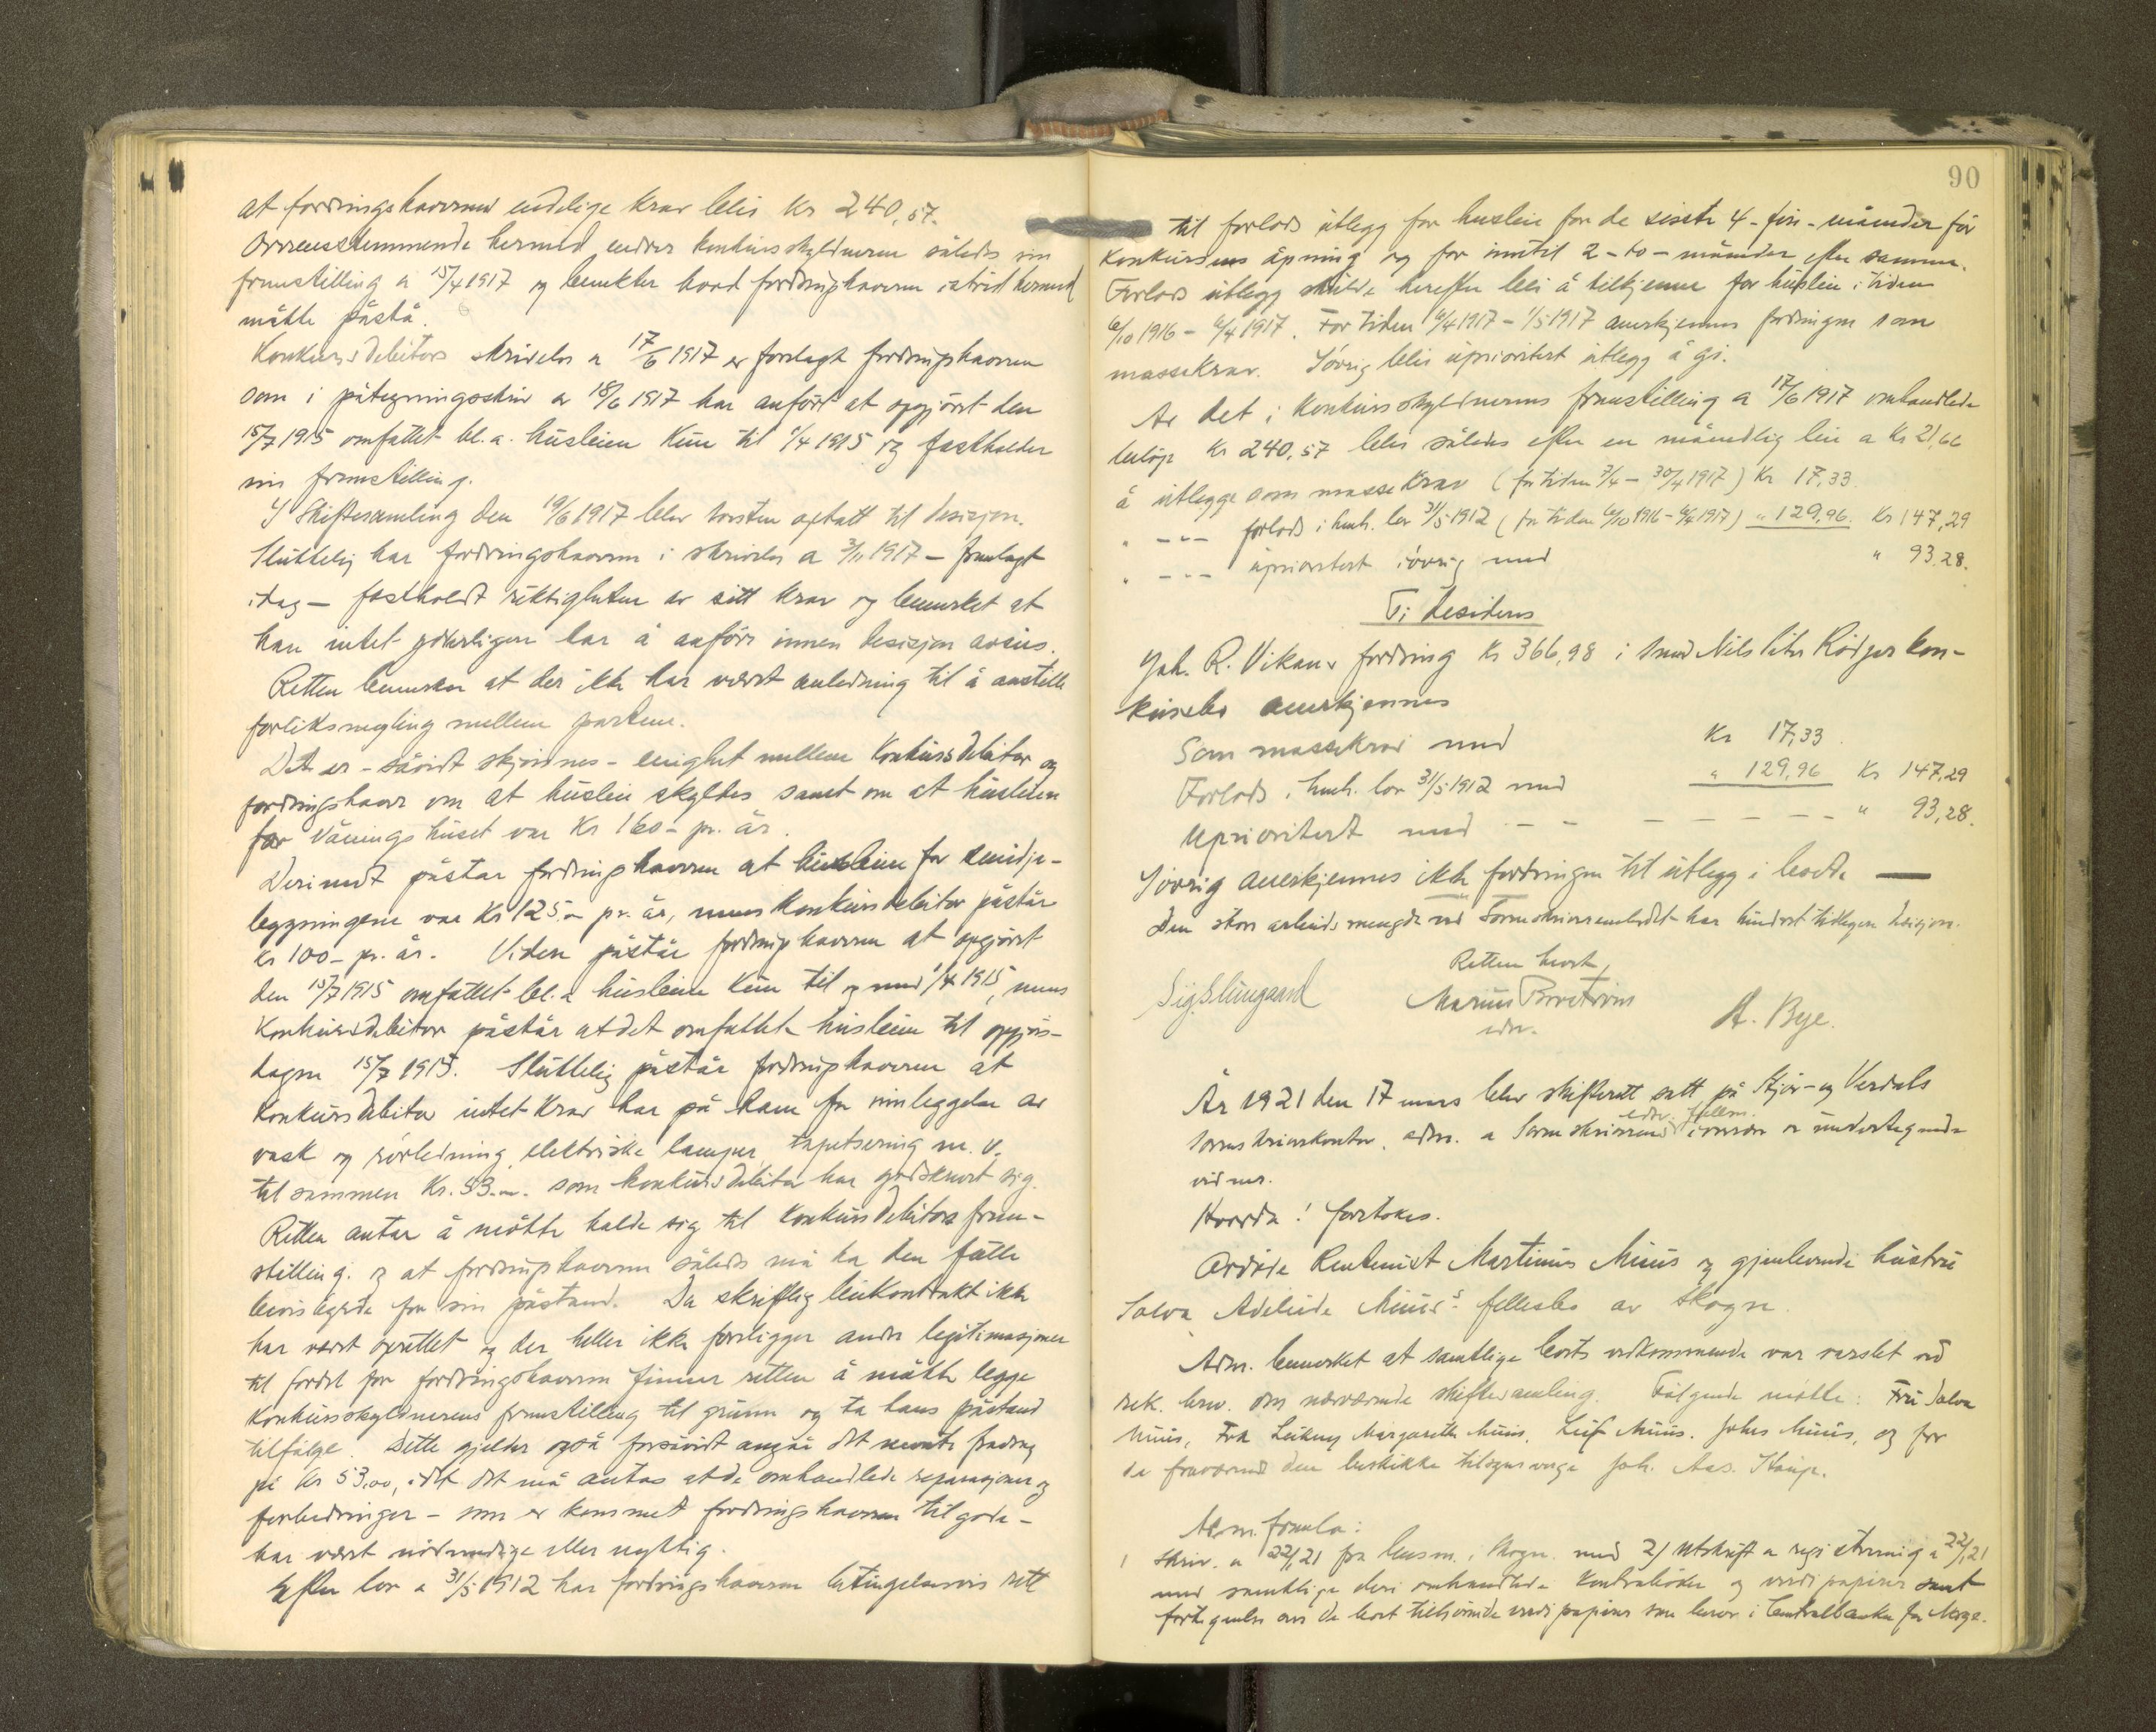 at fordringshaverens endelige krav blir kr 240,57.
Overensstemmende hermed endrer konkursskyldneren således sin
fremstilling a 15/4 1917 og benekter hvad fordringshaveren i strid hermed
måtte påstå.
Konkursdebitors skrivelse a 17/6 1917 er forelagt fordringshaveren
som i påtegningsskriv av 18/6 1917 har anført at opgjøret den
15/7 1915 omfattet bl.a. husleien kun til 1/4 1915 og fastholder
sin fremstilling.
I Skiftesamling den 19/6 1917 blev tvisten optatt til desisjon.
Sluttelig har fordringshaveren i skrivelse a 3/11 1917 – fremlagt
idag – fastholdt riktigheten av sitt krav og bemerket at
han intet ytterligere har å anføre innen desisjon avsies.
Retten bemerker at der ikke har været anledning til å anstille
forliksmegling mellem partene.
Det er – såvidt skjønnes – enighet mellem konkursdebitor og
fordringshaver om at husleie skyldes samt om at husleien
for våningshuset var Kr 160– pr. år.
Derimot påstår fordringshaveren at husleien for smidje-
bygningene var Kr 125.– pr. år, mens konkursdebitor påstår
kr 100– pr. år. Videre påstår fordringshaveren at opgjøret
den 15/7 1915 omfattet bl.a husleien kun til og med 1/4 1915, mens
Konkursdebitor påstår at det omfattet husleien til opgjørs-
dagen 15/7 1915. Sluttelig påstår fordringshaveren at
konkursdebitor intet krav har på ham for innleggelse av
vask og rørledning, elektriske lamper, tapetsering m.v.
til sammen Kr. 53.–. som konkursdebitor har godskrevet sig.
Retten antar å måtte holde sig til konkursdebitors frem-
stilling. og at fordringshaveren således må ha den fulle
bevisbyrde for sin påstand. Da skriftlig leiekontrakt ikke
har vært oprettet og der heller ikke foreligger andre legitimasjoner
til fordel for fordringshaveren finner retten å måtte legge
konkursskyldnerens fremstilling til grunn og ta hans påstand
tilfølge. Dette gjelder også forsåvidt angår det nevnte fradrag
på Kr 53.00, idet det må antas at de omhandlede reparasjoner og
forbedringer – som er kommet fordringshaveren tilgode –
har vært nødvendige eller nyttig.
Efter lov a 31/5 1912 har fordringshaveren betingelsesvis rett
90
til forlods utlegg for husleie for de sisste 4 - fire - måneder før
konkursens åpning og for inntil 2 - to - måneder efter samme.
Forlods utlegg skulde herefter bli å tilkjenne for husleie i tiden
6/10 1916 – 6/4 1917. For tiden 6/4 1917 – 1/5 1917 anerkjennes fordringen som
massekrav. Iøvrig blir uprioritert utlegg å gi.
Av det i konkursskyldnerens fremstilling a 17/6 1917 omhandlede
beløp Kr 240,57 blir således efter en månedlig leie a Kr 21,66
å utlegge som massekrav (for tiden 7/4 – 30/4 1917) Kr 17,33
" --- forlods i henh. lov 31/5 1912 (for tiden 6/10 1916 – 6/4 1917) " 129,96. Kr 147,29
" --- uprioritert iøvrig med " 93.28.
Ti desideres
Joh. R. Vikans fordring kr 366,98 i smed Nils Peter Rødgers kon-
kursbo anerkjennes
Som massekrav med Kr 17,33
Forlods i henh. lov 31/5 1912 med " 129,96 Kr 147,29
Uprioritert med – – – – – – – – " 93,28.
Iøvrig anerkjennes ikke fordringen til utlegg i boet. —
Den store arbeidsmengde ved Sorenskriverembedet har hindret tidligere desisjon.
Retten hevet,
Sig. Slungaard Marius Brostrøm A. Bye.
edsv.
År 1921 den 17 mars blev skifterett satt på Stjør- og Verdals
sorenskriverkontor, adm. a sorenskriverens edsv. fullm.
i nærvær av undertegnede
vidner.
Hvorda! foretokes.
Avdøde Rentenist Martinus Minis og gjenlevende hustru
Salva Adelide Minis's fellesbo av Skogn.
Adm. bemerket at samtlige boets vedkommende var varslet ved
rek. brev. om nærværende skiftesamling. Følgende møtte: Fru Salva
Minis, Frk Margarethe Minis, Leif Minis, Johs Minis, og for
de fraværende den beskikkede tilsynsverge Joh. Aas.
Adm. fremla:
1 Skriv. a 22/1 21 fra lensm. i Skogn. med 2) Utskrift av registrering a 22/1 21
med samtlige deri omhandlede kontrabøker og verdipapirer samt
fortegnelse over de boet tilhørende verdipapirer som beror i Centralbanken for Norge.